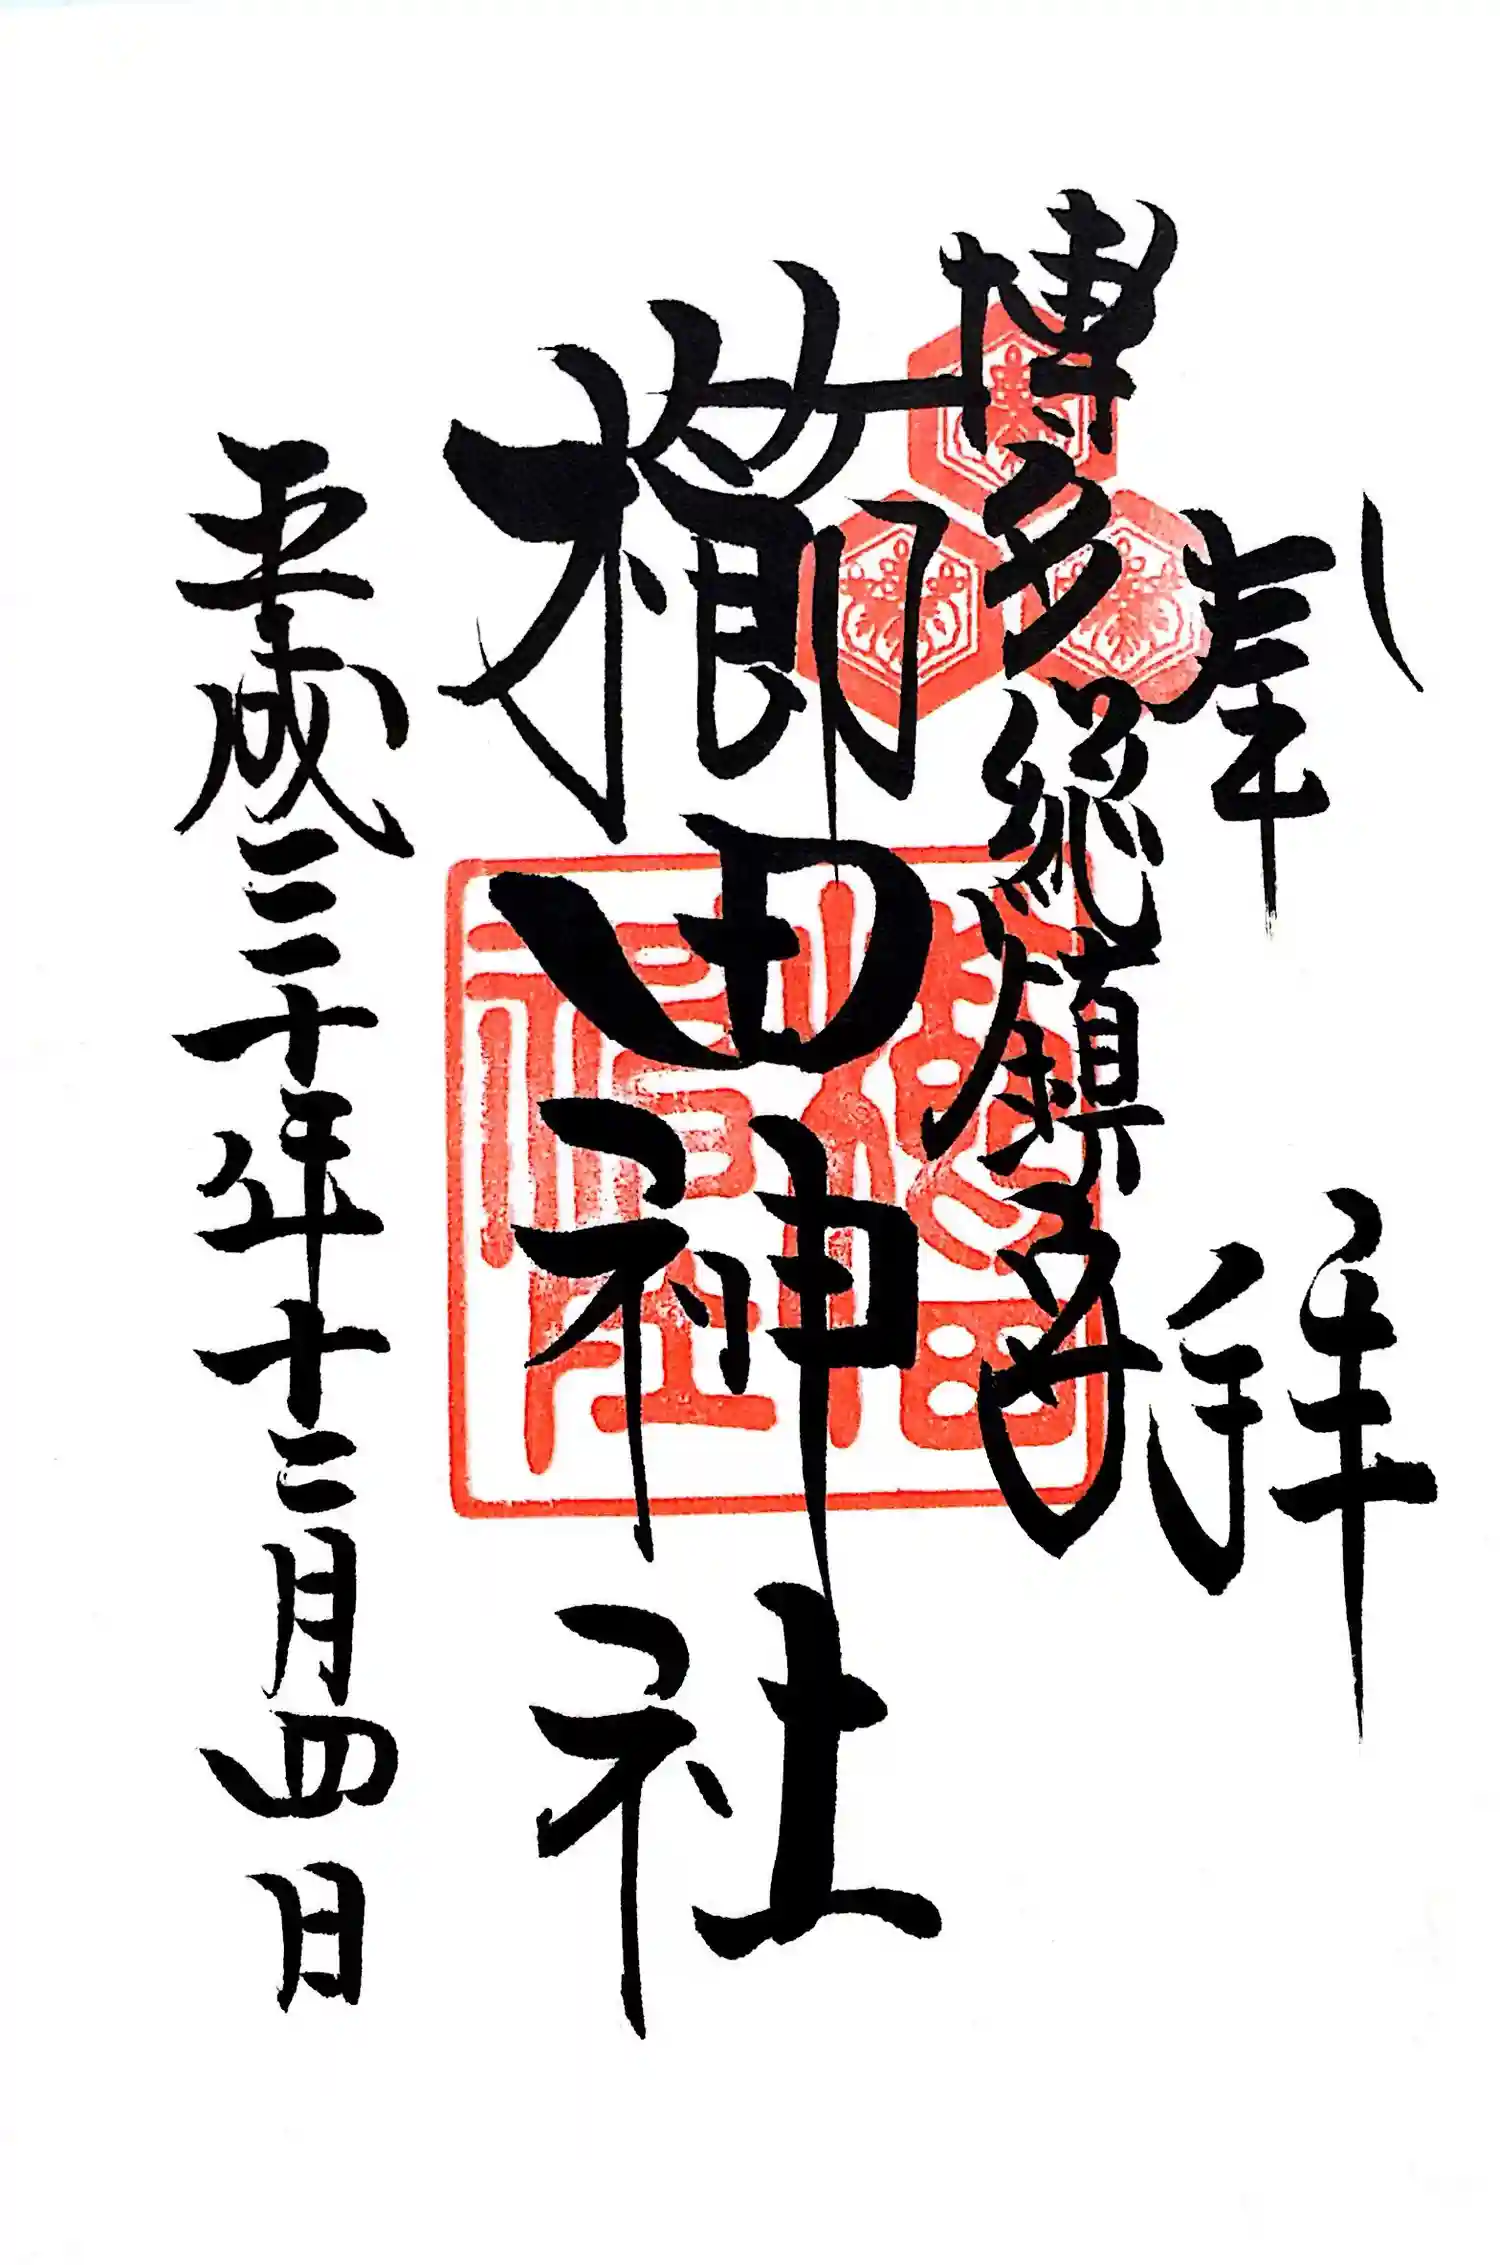 奉拝
博多総鎮守
櫛田神社
平成三十年十二月四日